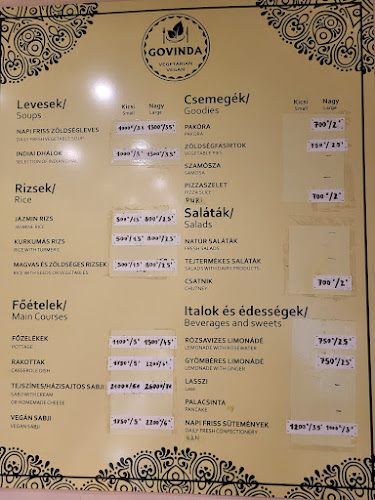 GOVINDA
VEGETARIAN
VEGAN
Levesek/
Soups
Kicsi Nagy
Small Large
NAPI FRISS ZÖLDSÉGLEVES
DAILY FRESH VEGETABLE SOUP
INDIAI DHÁLOK
SELECTION OF INDIAN DHAL
Rizsek/
Rice
JÁZMIN RIZS 500/1.5 800/2.5
JASMINE RICE
KURKUMÁS RIZS 500/1.5 800/2.5
RICE WITH TURMERIC
MAGVAS ÉS ZÖLDSÉGES RIZSEK 500/1.5 800/2.5
RICE WITH SEEDS OR VEGETABLES
Főételek/
Main Courses
FŐZELÉKEK 1100/3 1500/4.5
POTTAGE
RAKOTTAK 1750/5 2200/6
CASSEROLE DISH
TEJSZÍNES/HÁZISAJTOS SABJI
SABJI WITH CREAM
OR HOMEMADE CHEESE
VEGÁN SABJI 1750/5 2200/6
VEGAN SABJI
Csemegék/
Goodies
Kicsi Nagy
Small Large
PAKÓRA 700/2
PAKORA
ZÖLDSÉGFASÍRTOK
VEGETABLE PATTIES
SZAMÓSZA
SAMOSA
PIZZASZELET 700/2
PIZZA SLICE
PURI
Saláták/
Salads
NATÚR SALÁTÁK
FRESH SALADS
TEJTERMÉKES SALÁTÁK
SALADS WITH DAIRY PRODUCTS
CSATNIK 700/2
CHUTNEY
Italok és édességek/
Beverages and sweets
RÓZSAVIZES LIMONÁDÉ 750/2.5
LEMONADE WITH ROSEWATER
GYÖMBÉRES LIMONÁDÉ 750/2.5
LEMONADE WITH GINGER
LASSZI
LASSI
PALACSINTA
PANCAKE
NAPI FRISS SÜTEMÉNYEK
DAILY FRESH CONFECTIONERY